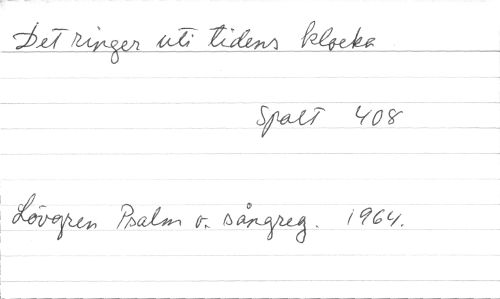 Det ringer uti tidens klocka
Spalt 408
Lövgren Psalm o. sångreg. 1964.